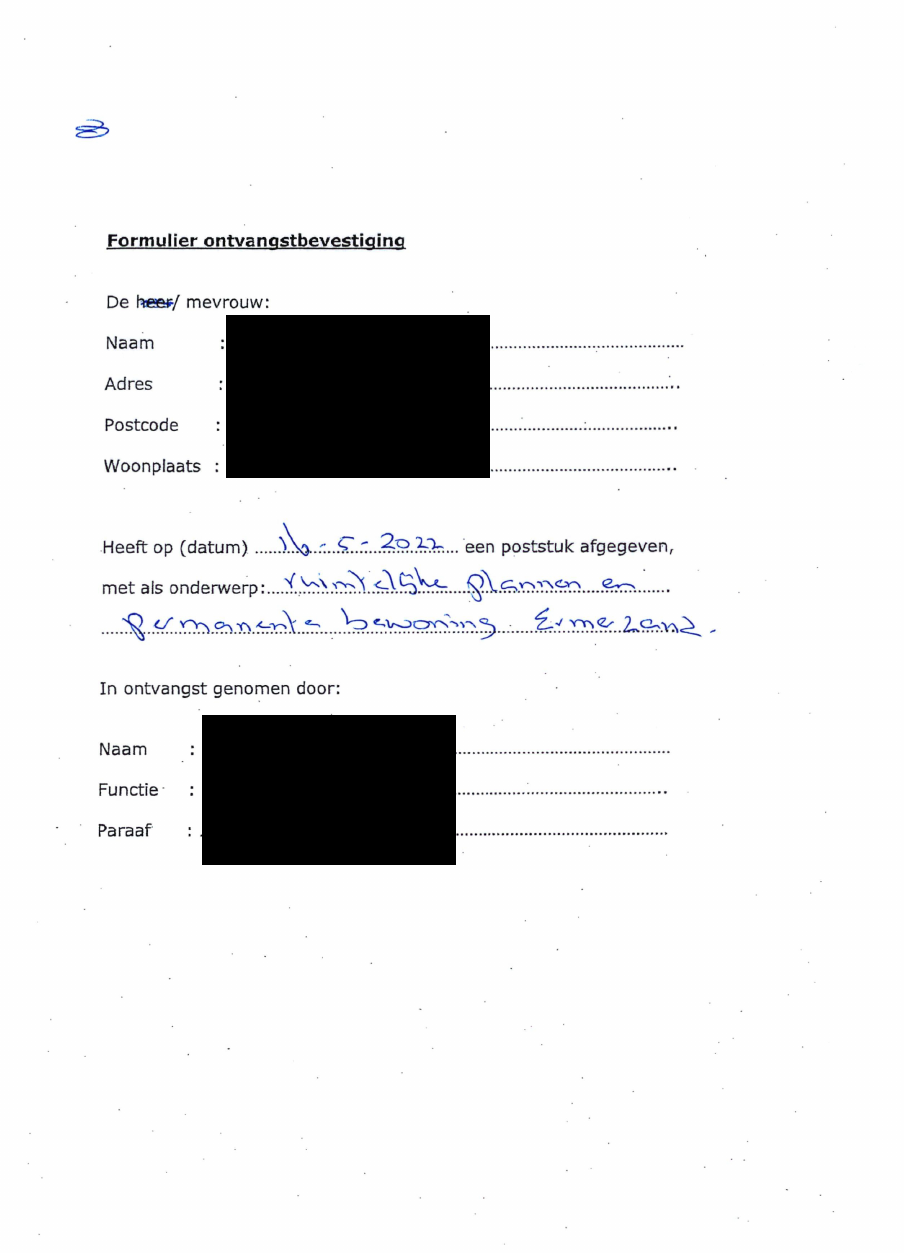 Formulier ontvangstbevestiging
De heer/ mevrouw:
Naam :
Adres :
Postcode :
Woonplaats :
Heeft op (datum) 16-5-2022 een poststuk afgegeven,
met als onderwerp: ruimtelijke plannen en
permanente bewoning Ermerzand.
In ontvangst genomen door:
Naam :
Functie :
Paraaf :